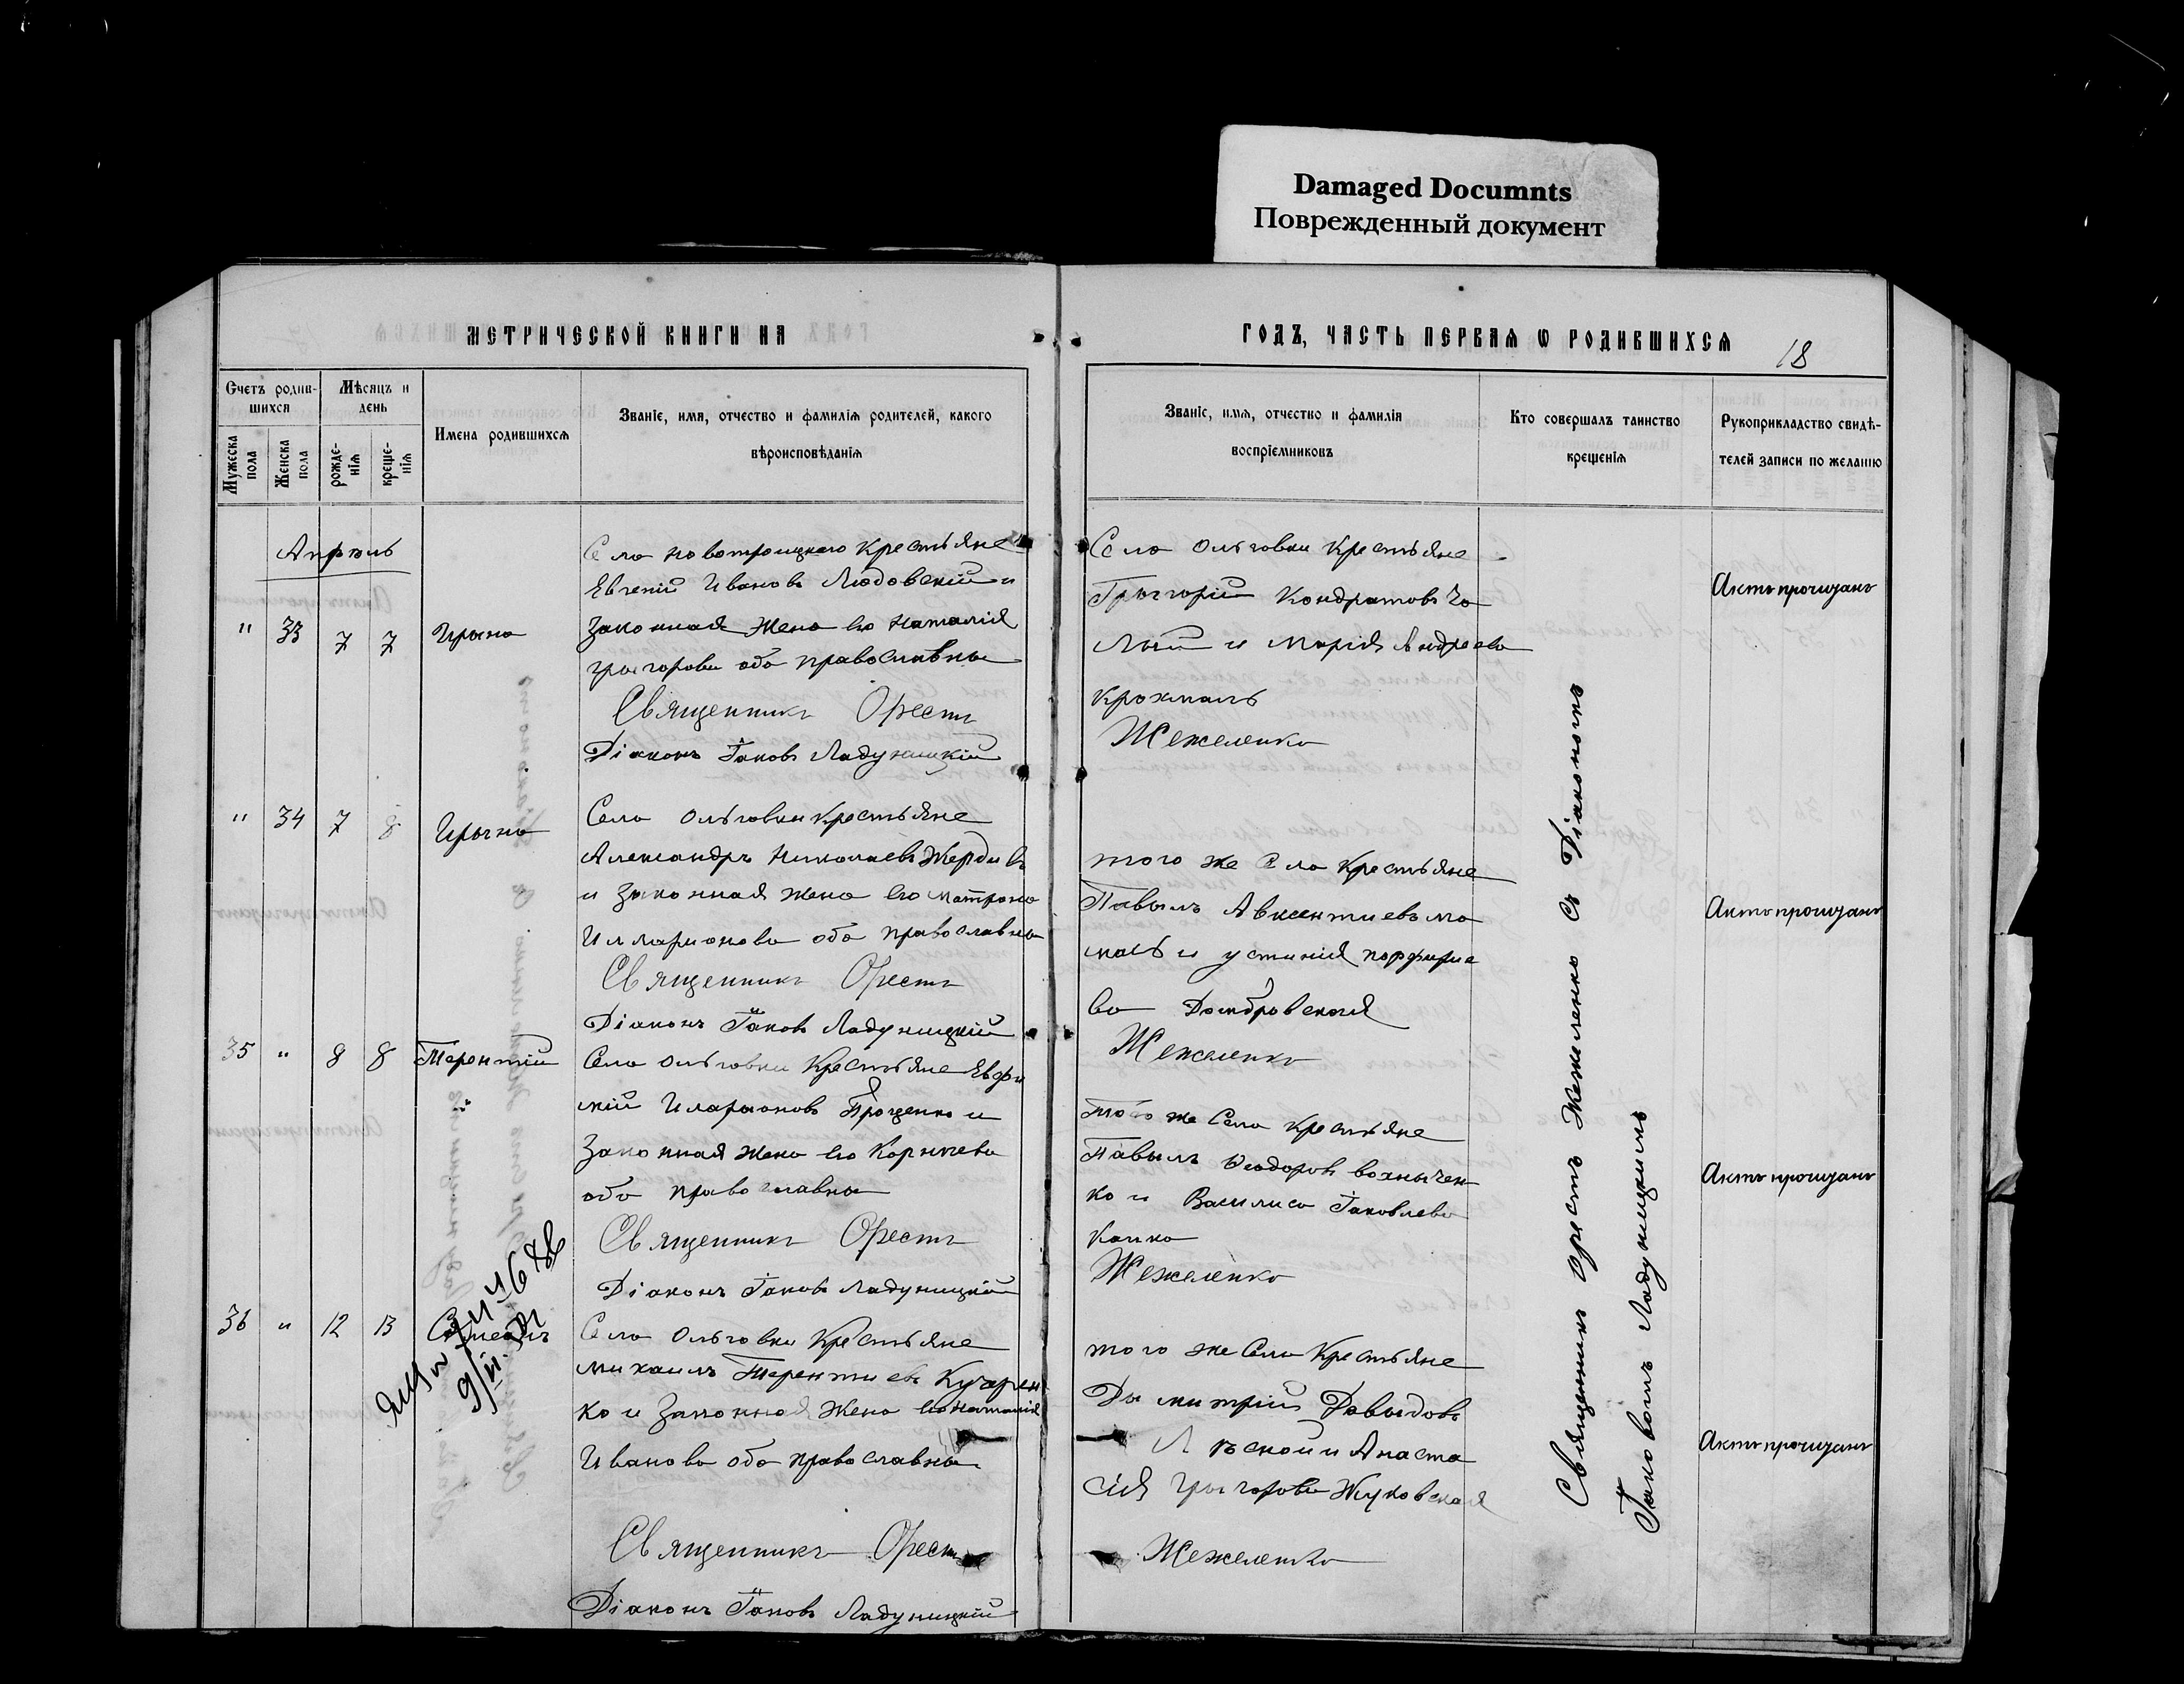 Damaged Documnts
Поврежденный документ
МЕТРИЧЕСКОЙ КНИГИ НА
ГОДЪ, ЧАСТЬ ПЕРВАЯ Ѡ РОДИВШИХСЯ
18
Счетъ родив-
шихся
Мѣсяцъ и
день
Мужеска
пола
Женска
пола
рожде-
нія
креще-
нія
Имена родившихся
Званіе, имя, отчество и фамилія родителей, какого
вѣроисповѣданія
Званіе, имя, отчество и фамилія
воспріемниковъ
Кто совершалъ таинство
крещенія
Рукоприкладство свидѣ-
телей записи по желанію
Апрѣль
" 33 7 7 Ирына
Села Новотроицкаго Крестьяне
Евгеній Ивановъ Людовскій и
Законная Жена его Наталія
Грыгорова оба православны
Священникъ Орестъ
Діаконъ Іаковъ Ладуницкій
Села Ольговки Крестьяне
Грыгорій Кондратовъ Го
лый и Марія Андреева
Крохмаль
Жежеленко
Актъ прочиданъ
" 34 7 8 Ирына
Села Ольговки Крестьяне
Александръ Николаевъ
и Законная жена его Матрона
Илларионова оба православны
Священникъ Орестъ
Діаконъ Іаковъ Ладуницкій
того же Села Крестьяне
Павылъ Авксентиевъ
и Устинія Порфирие
ва Домбровская
Жежеленко
Актъ прочиданъ
35 " 8 8 Терентій
Села Ольговки Крестьяне Евфи
мій Иларионовъ Проценко и
Законная жена его Корниева
оба православны
Священникъ Орестъ
Діаконъ Іаковъ Ладуницкій
того же Села Крестьяне
Павылъ Ѳеодоровъ
ко и Василиса Іаковлева
Жежеленко
Актъ прочиданъ
36 " 12 13 Сымеонъ
9/II
Села Ольговки Крестьяне
Михаилъ Терентиевъ Кучерен
ко и Законная Жена его Наталія
Иванова оба православны
Священникъ Орестъ
Діаконъ Іаковъ Ладуницкій
того же Села Крестьяне
Дымитрій Давыдовъ
и Анаста
сія Грыгорова Жуковская
Жежеленко
Актъ прочиданъ
Священникъ Орестъ Жежеленко съ Діакономъ
Іаковомъ Ладуницкимъ